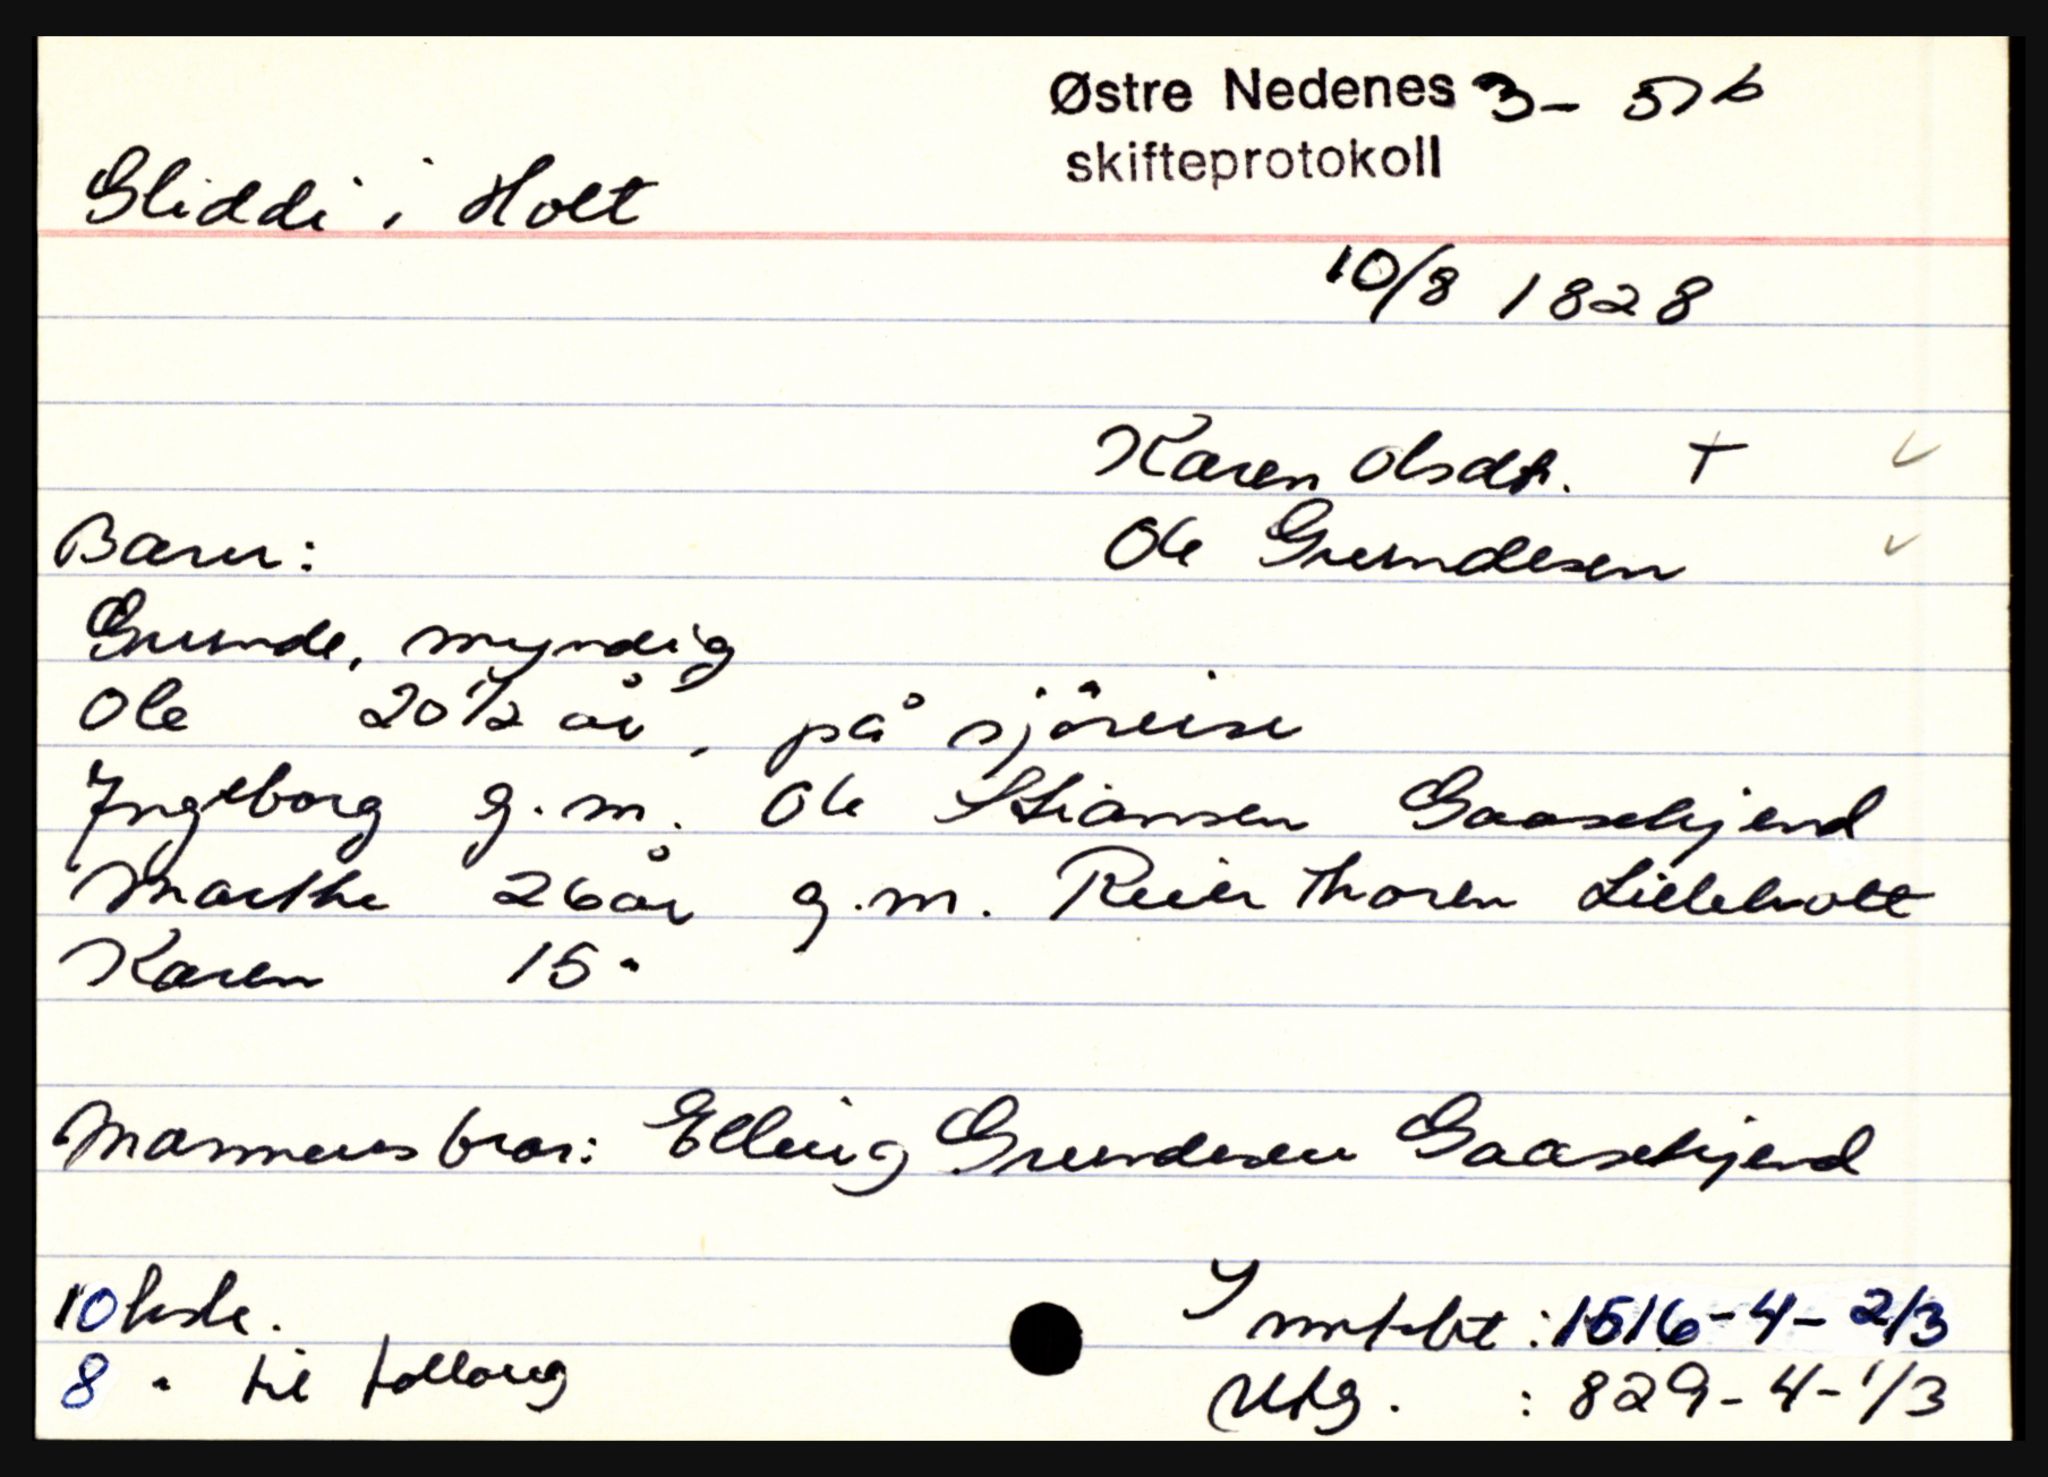 Østre Nedenes 3 - 57b
skifteprotokoll
Gliddi i Holt
10/8 1828
Karen Olsdt. † ✓
Barn:
Ole Grundesen ✓
Grunde, myndig
Ole 20 1/2 år, på sjöreise
Ingeborg g.m. Ole Stiansen Gaaskjend
Marthe 26 år g.m. Reier Thorsen Lilleholt
Karen 15 "
Mannens bror: Elling Grundesen Gaaskjend
10
8 " til
: 1516-4-2/3
Utg. : 829-4-1/3